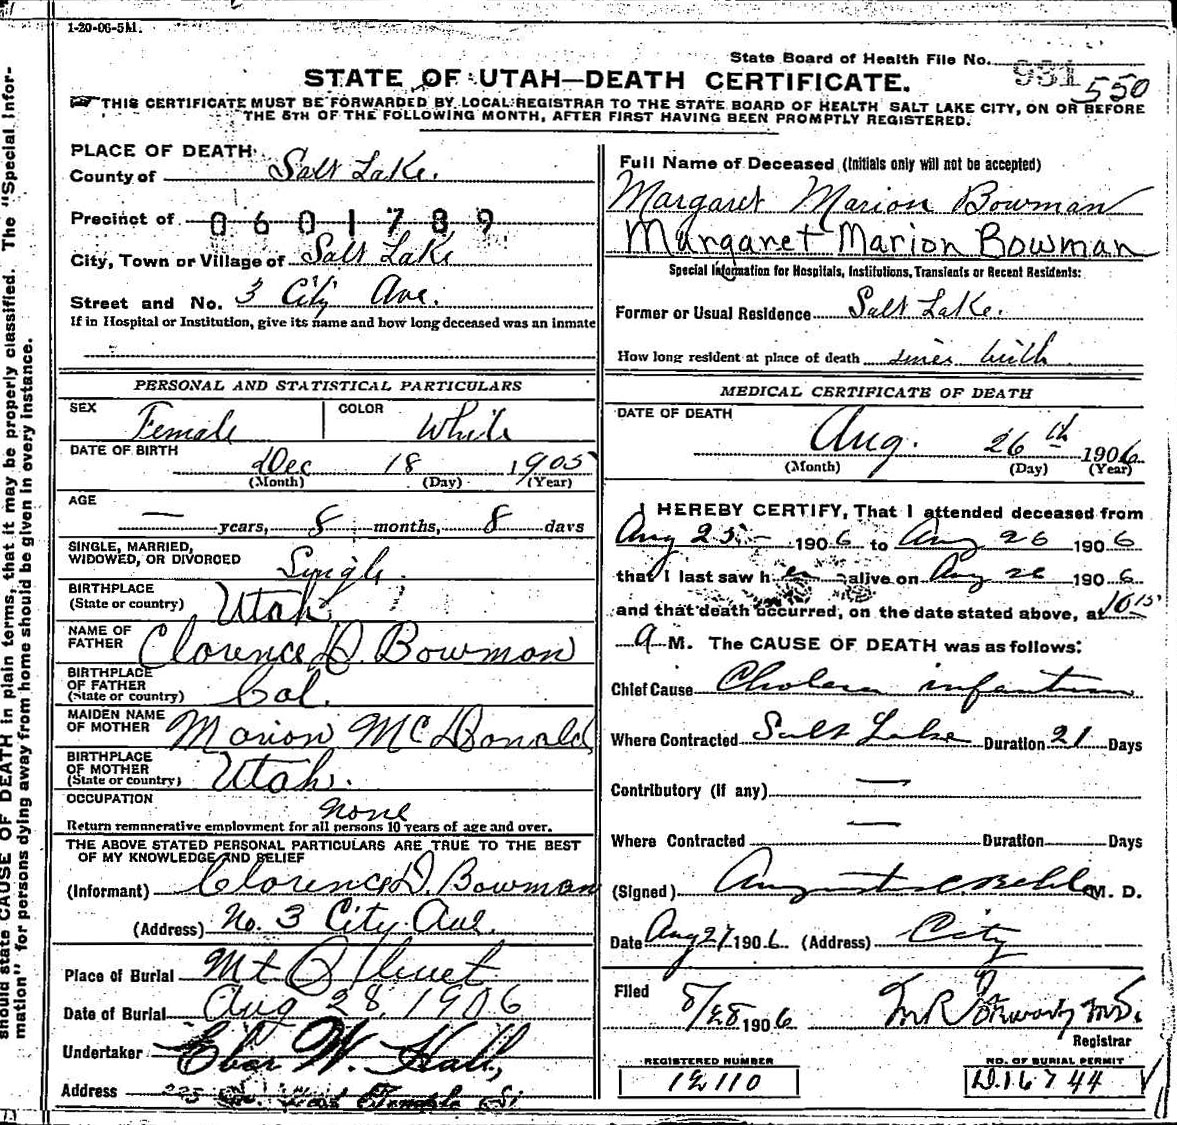 1-20-06-5M.
State Board of Health File No. 931 550
STATE OF UTAH—DEATH CERTIFICATE.
THIS CERTIFICATE MUST BE FORWARDED BY LOCAL REGISTRAR TO THE STATE BOARD OF HEALTH SALT LAKE CITY, ON OR BEFORE
THE 5TH OF THE FOLLOWING MONTH, AFTER FIRST HAVING BEEN PROMPTLY REGISTERED.
should state CAUSE OF DEATH in plain terms, that it may be properly classified. The "Special Infor-
mation" for persons dying away from home should be given in every instance.
PLACE OF DEATH
County of Salt Lake.
Precinct of 0601789
City, Town or Village of Salt Lake
Street and No. 3 City Ave.
If in Hospital or Institution, give its name and how long deceased was an inmate
PERSONAL AND STATISTICAL PARTICULARS
SEX Female COLOR White
DATE OF BIRTH Dec 18 1905
(Month) (Day) (Year)
AGE
— years, 8 months, 8 days
SINGLE, MARRIED,
WIDOWED, OR DIVORCED Single.
BIRTHPLACE
(State or country) Utah
NAME OF
FATHER Clarence D. Bowman
BIRTHPLACE
OF FATHER
(State or country) Cal.
MAIDEN NAME
OF MOTHER Marion McDonald
BIRTHPLACE
OF MOTHER
(State or country) Utah.
OCCUPATION none
Return remunerative employment for all persons 10 years of age and over.
THE ABOVE STATED PERSONAL PARTICULARS ARE TRUE TO THE BEST
OF MY KNOWLEDGE AND BELIEF
(Informant) Clarence D. Bowman
(Address) No. 3 City Ave.
Place of Burial Mt Olivet
Date of Burial Aug 28, 1906
Undertaker Eber W. Hall,
Address 225 So. West Temple St
Full Name of Deceased (Initials only will not be accepted)
Margaret Marion Bowman
Margaret Marion Bowman
Special Information for Hospitals, Institutions, Transients or Recent Residents:
Former or Usual Residence Salt Lake.
How long resident at place of death since birth
MEDICAL CERTIFICATE OF DEATH
DATE OF DEATH
Aug. 26th 1906
(Month) (Day) (Year)
I HEREBY CERTIFY, That I attended deceased from
Aug 25 — 1906 to Aug 26 1906
that I last saw her alive on Aug 26 1906
and that death occurred, on the date stated above, at 10 15
a M. The CAUSE OF DEATH was as follows:
Chief Cause Cholera infantum
Where Contracted Salt Lake Duration 21 Days
Contributory (If any) —
Where Contracted — Duration Days
(Signed) Augustus C Behle M. D.
Date Aug 27 1906 (Address) City
Filed 8/28 1906 M.D.
Registrar
REGISTERED NUMBER
12110
NO. OF BURIAL PERMIT
D.16744